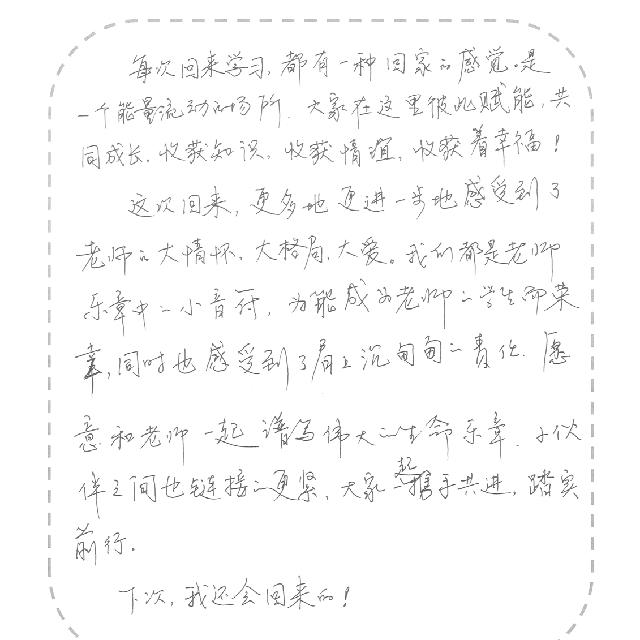 每次回来学习,都有一种回家的感觉。是
一个能量流动的场所.大家在这里彼此赋能,共
同成长.收获知识,收获情谊,收获着幸福!
这次回来,更多地更进一步地感受到了
老师的大情怀、大格局、大爱。我们都是老师
乐章中的小音符,为能成为老师的学生而荣
幸,同时也感受到了肩上沉甸甸的责任.愿
意和老师一起谱写伟大的生命乐章.小伙
伴之间也链接的更紧,大家一起携手共进,踏实
前行.
下次,我还会回来的!